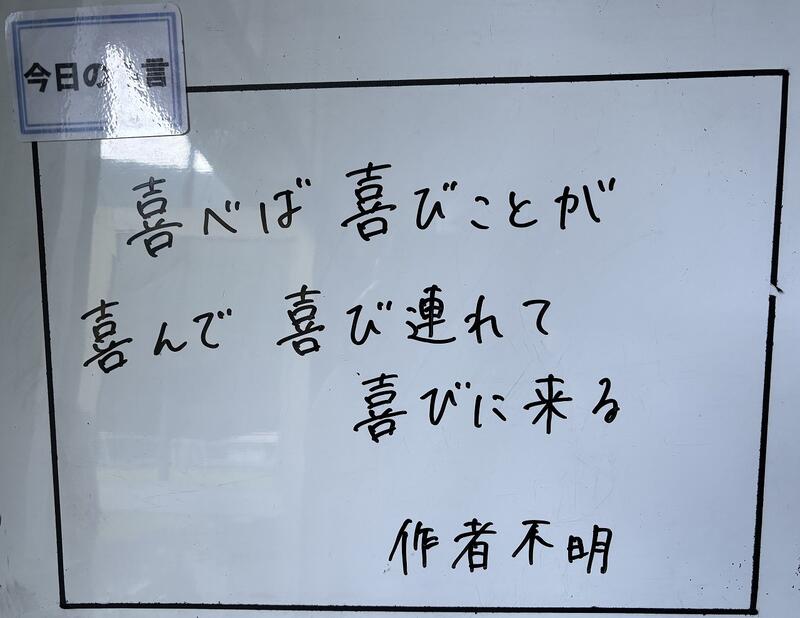 今日の 言
喜べば 喜びことが
喜んで 喜び連れて
喜びに来る
作者不明